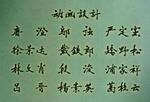 动画设计
唐澄 邬强 严定宪
徐景达 戴铁郎 林文肖
段浚 浦家祥
吕晋 杨素英 葛桂云